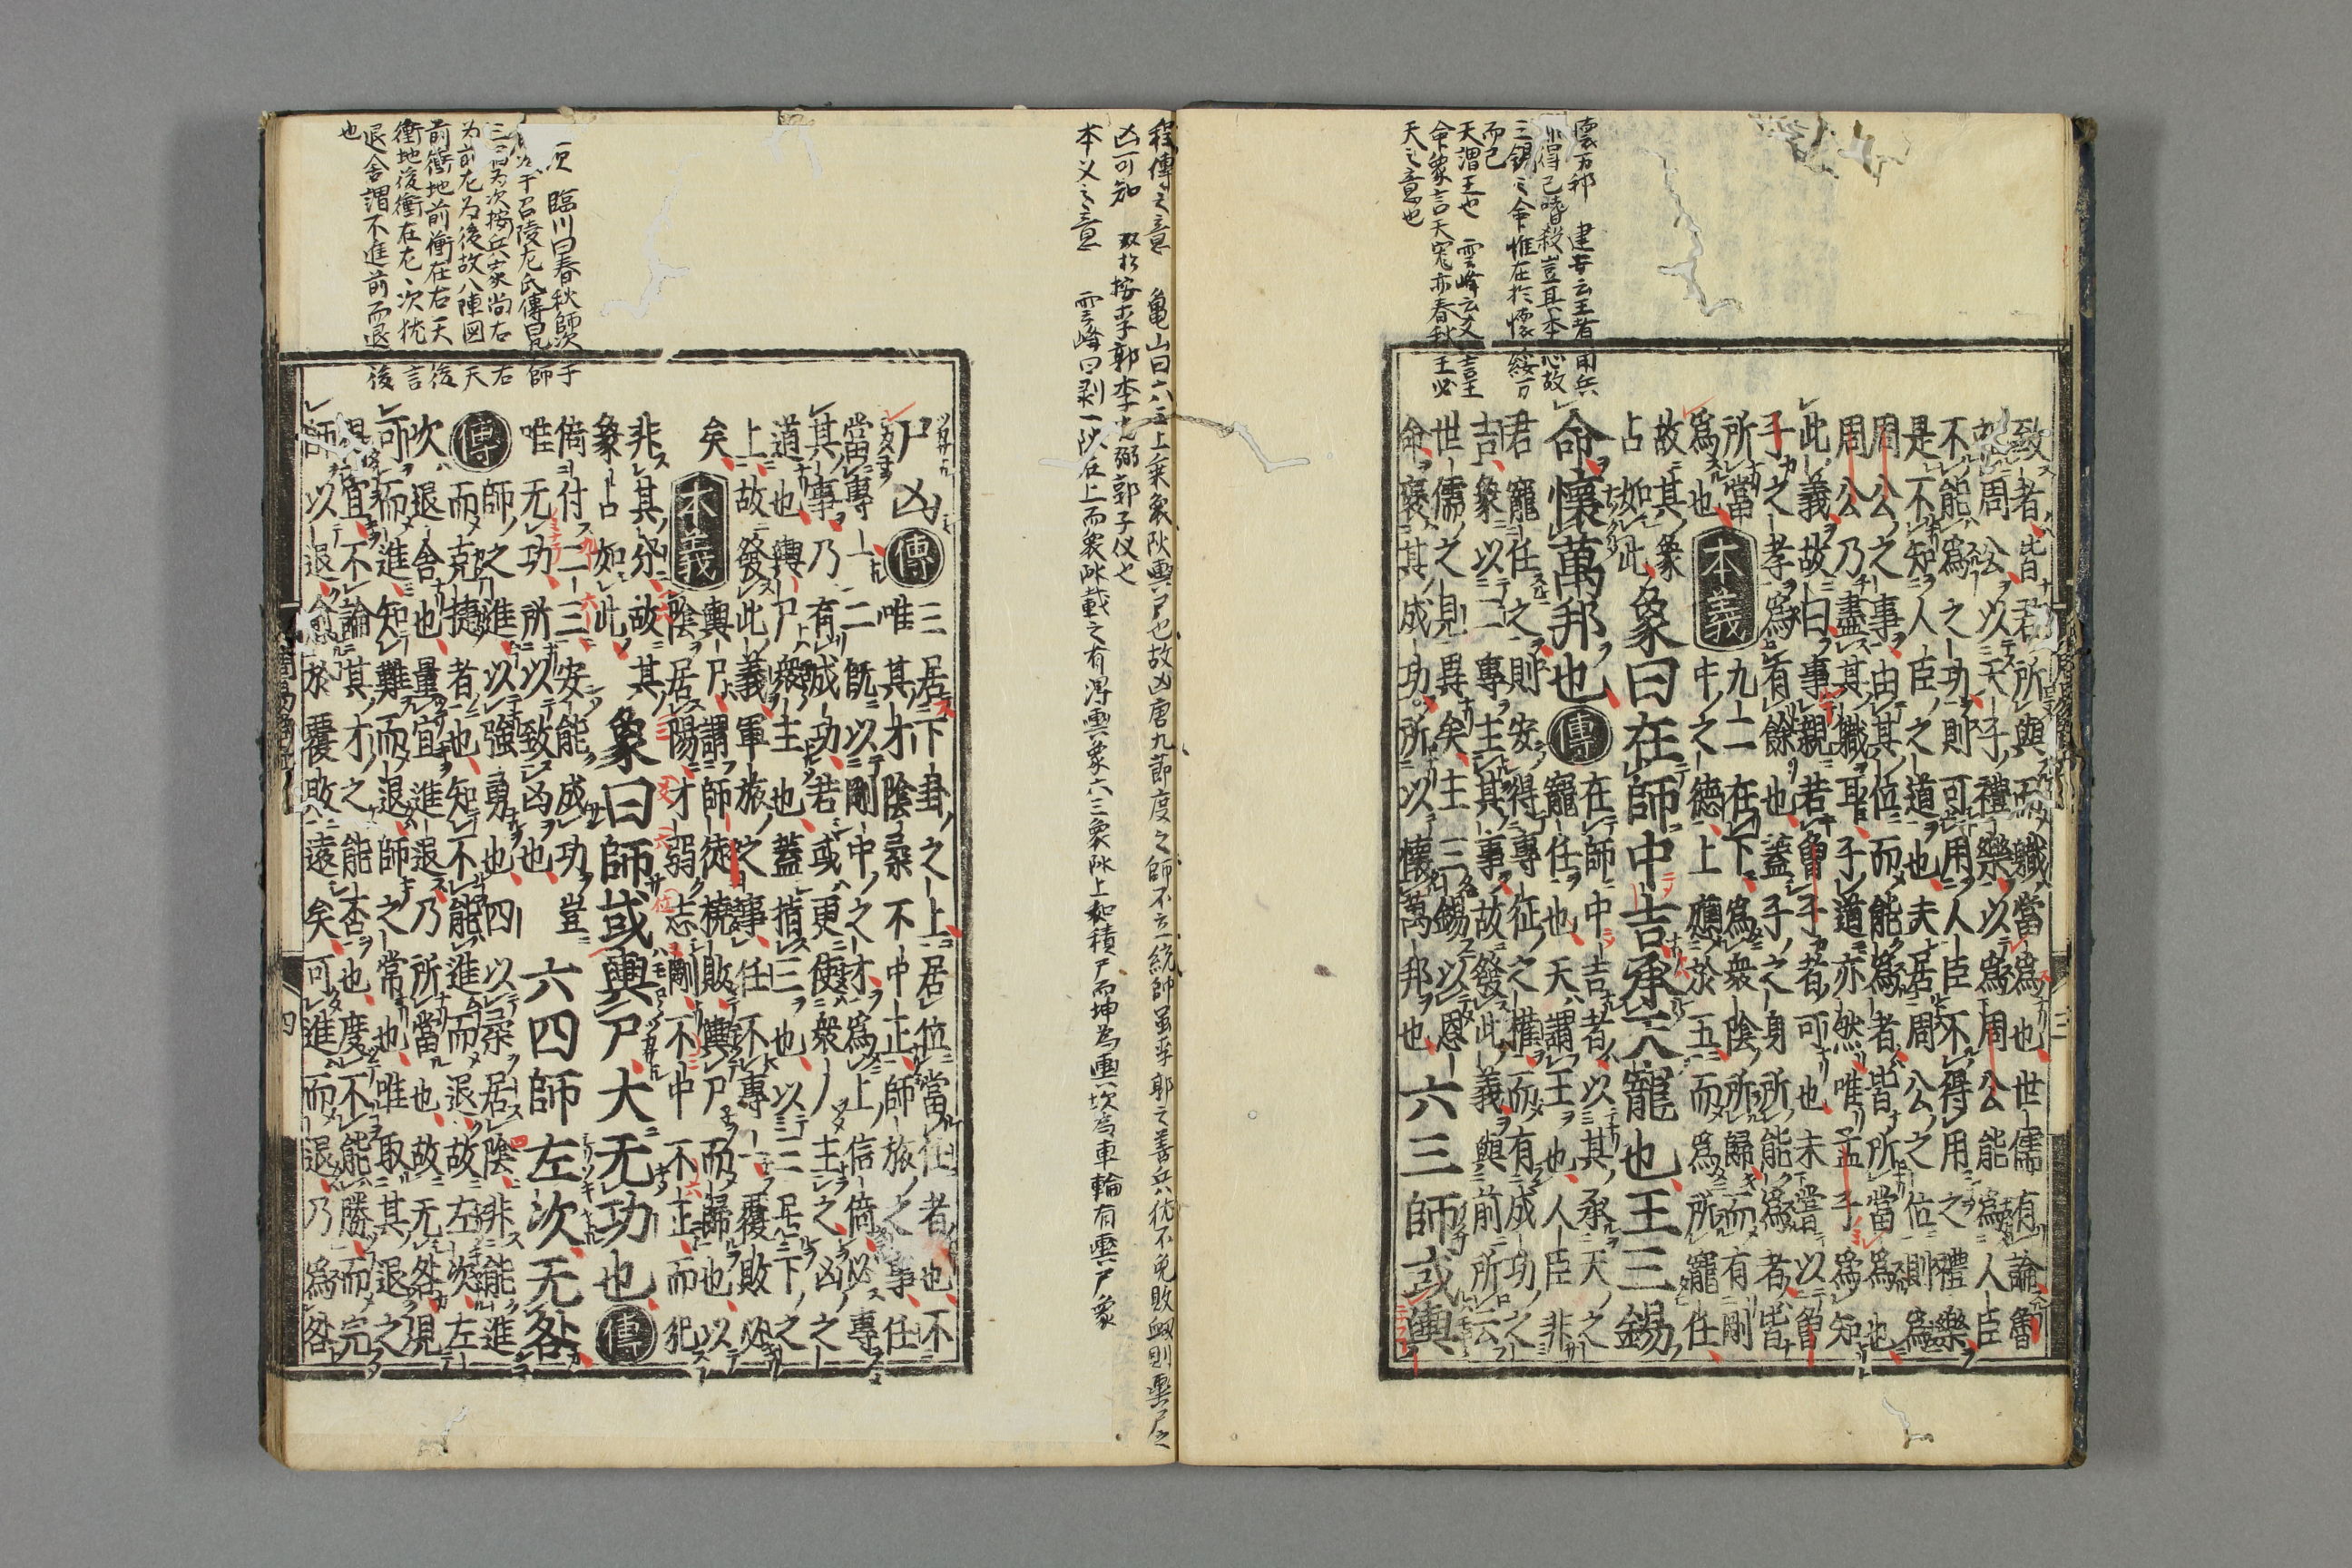 懷万邦　建安云王者用兵
非得已嗜殺豈其本心故
三錫之命惟在於懷綏万
而已
天謂王也　雲峰云爻言王
命象言天寵亦春秋王必
天之意也
致者皆君所與而職當爲也世儒有論魯
祀周公以天子禮樂以爲周公能爲人臣
不能爲之功則可用人臣不得用之禮樂
是不知人臣之道也夫居周公之位則爲
周公之事由其位而能爲者皆所當爲也
周公乃盡其職耳子道亦然唯孟子爲知
此義故曰事親若曾子者可也未嘗以曾
子之孝爲有餘也蓋子之身所能爲者皆
所當
爲也
本義
九二在下爲衆陰所歸而有剛
中之德上應於五而爲所寵任
故其象
占如此
象曰在師中吉承天寵也王三錫
命懷萬邦也
傳
在師中吉者以其承天之
寵任也天謂王也人臣非
君寵任之則安得專征之權而有成功之
吉象以二專主其事故發此義與前所云
世儒之見異矣王三錫以恩
命褒其成功所以懷萬邦也
六三師或輿
程傳之意　亀山曰六三上乗象陰輿尸也故凶唐九節度之師不立統帥虽李郭之善兵犹不免敗衂則輿尸之
凶可知　双松按李郭李光弼郭子仪也
本义之意　雲峰曰剥一陽在上而衆陰載之有得輿象六三衆陰上如積尸而坤為輿坎為車輪有輿尸象
尸凶
傳
三居下卦之上居位當任者也不
唯其才陰柔不中正師旅之事任
當專一二既以剛中之才爲上信倚必專
其事乃有成功若或更使衆人主之凶之
道也輿尸衆主也蓋指三也以三居下之
上故發此義軍旅之事任不專一覆敗必
矣
本義
輿尸謂師徒橈敗輿尸而歸也以
陰居陽才弱志剛不中不正而犯
非其分故其
象占如此
象曰師或輿尸大无功也
傳
倚付二三安能成功豈
唯无功所以致凶也
六四師左次无咎
傳
師之進以強勇也四以柔居陰非能進
而克捷者也知不能進而退故左次左
次退舍也量宜進退乃所當也故无咎見
可而進知難而退師之常也唯取其退之
得宜不論其才之能否也度不能勝而完
師以退愈於覆敗遠矣可進而退乃爲咎
次　臨川曰春秋師次于
次于召陵左氏傳曰凡師
三宿为次按兵家尚右右
为前左为後故八陣図天
前衝地前衝在右天後
衝地後衝在左、次犹言
退舍謂不進前而退後
也
四